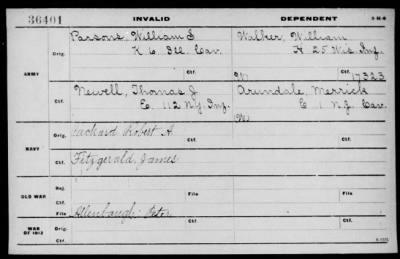 36401 INVALID DEPENDENT
Parsons, William S. Walker, William
Orig. K 6 Ill. Cav. H 25 Wis. Inf.
Ctf. Ctf.
ARMY W 17323
Newell, Thomas J. Arundale, Merrick
Orig. E. 112 N.Y. Inf. E 1 N.J. Cav.
Ctf. Ctf.
W
Robert A.
Orig. Ctf.
NAVY
Fitzgerald, James
Orig. Ctf.
Rej. File
OLD WAR Ctf. Ctf.
File
Allenbaugh Peter
WAR OF 1812 Ctf.